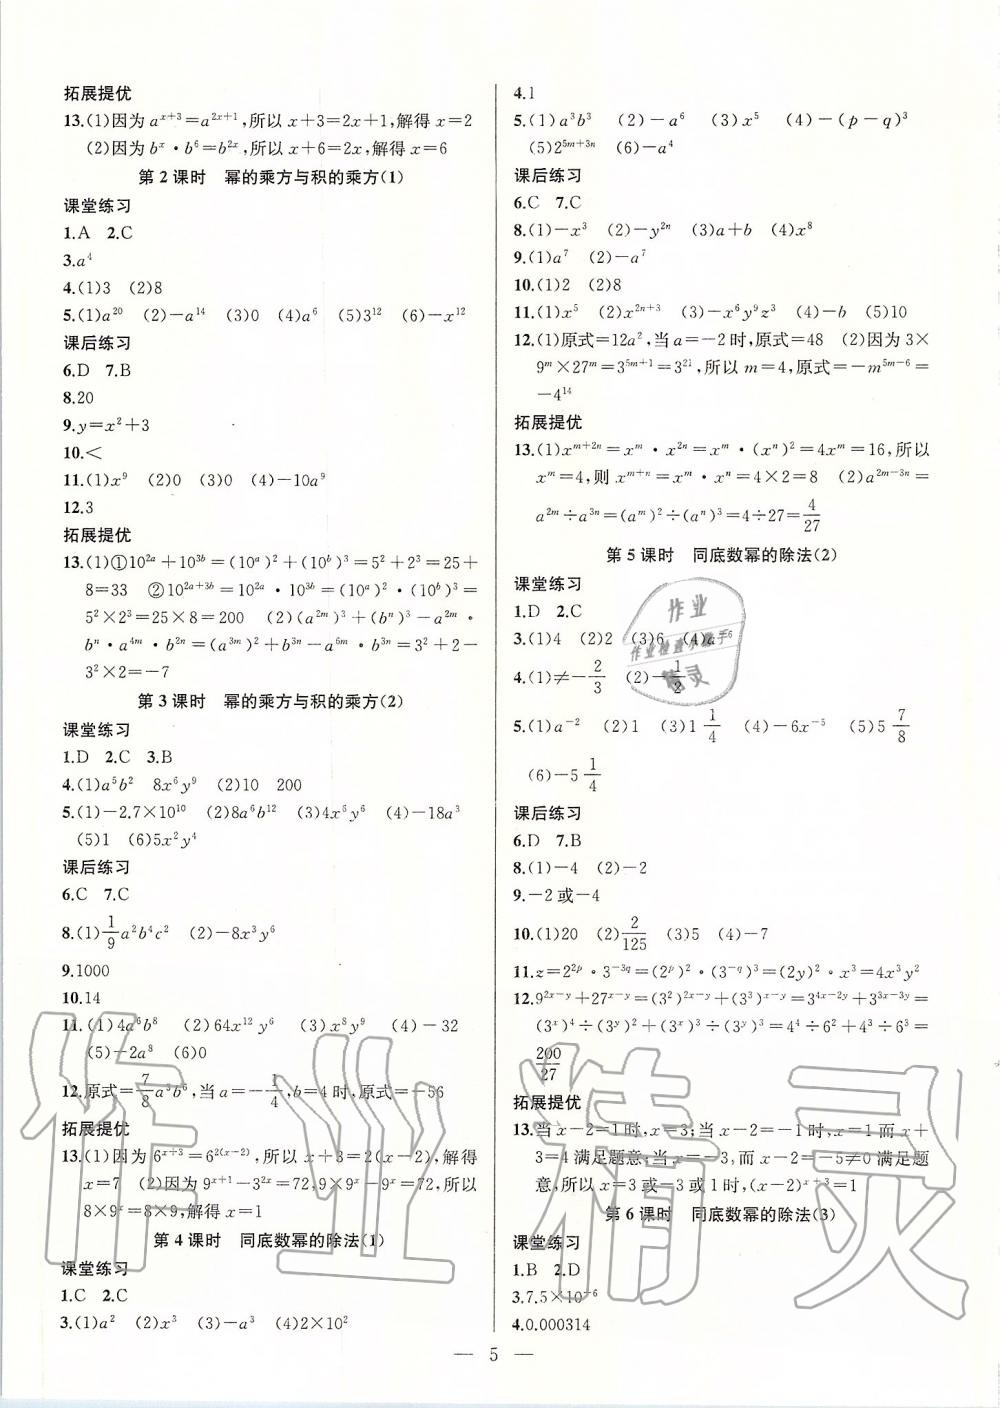 拓展提优
13.(1)因为 a^{x+3}=a^{2x+1},所以 x+3=2x+1,解得 x=2
(2)因为 b^x·b^6=b^{2x},所以 x+6=2x,解得 x=6
第 2 课时　幂的乘方与积的乘方(1)
课堂练习
1.A　2.C
3.a^4
4.(1)3　(2)8
5.(1)a^{20}　(2)-a^{14}　(3)0　(4)a^6　(5)3^{12}　(6)-x^{12}
课后练习
6.D　7.B
8.20
9.y=x^2+3
10.<
11.(1)x^9　(2)0　(3)0　(4)-10a^9
12.3
拓展提优
13.(1)①10^{2a}+10^{3b}=(10^a)^2+(10^b)^3=5^2+2^3=25+
8=33　②10^{2a+3b}=10^{2a}·10^{3b}=(10^a)^2·(10^b)^3=
5^2×2^3=25×8=200　(2)(a^{2m})^3+(b^n)^3-a^{2m}·
b^n·a^{4m}·b^{2n}=(a^{3m})^2+b^{3n}-a^{6m}·b^{3n}=3^2+2-
3^2×2=-7
第 3 课时　幂的乘方与积的乘方(2)
课堂练习
1.D　2.C　3.B
4.(1)a^5b^2　8x^6y^9　(2)10　200
5.(1)-2.7×10^{10}　(2)8a^6b^{12}　(3)4x^6y^6　(4)-18a^3
(5)1　(6)5x^2y^4
课后练习
6.C　7.C
8.(1)\frac{1}{9}a^2b^4c^2　(2)-8x^3y^6
9.1000
10.14
11.(1)4a^6b^8　(2)64x^{12}y^6　(3)x^8y^9　(4)-32
(5)-2a^8　(6)0
12.原式=\frac{7}{8}a^3b^6,当 a=-\frac{1}{4},b=4 时,原式=-56
拓展提优
13.(1)因为 6^{x+3}=6^{2(x-2)},所以 x+3=2(x-2),解得
x=7　(2)因为 9^{x+1}-3^{2x}=72,9×9^x-9^x=72,所以
8×9^x=8×9,解得 x=1
第 4 课时　同底数幂的除法(1)
课堂练习
1.C　2.C
3.(1)a^2　(2)x^3　(3)-a^3　(4)2×10^2
4.1
5.(1)a^3b^3　(2)-a^6　(3)x^5　(4)-(p-q)^3
(5)2^{5m+3n}　(6)-a^4
课后练习
6.C　7.C
8.(1)-x^3　(2)-y^{2n}　(3)a+b　(4)x^8
9.(1)a^7　(2)-a^7
10.(1)2　(2)8
11.(1)x^5　(2)x^{2n+3}　(3)-x^6y^9z^3　(4)-b　(5)10
12.(1)原式=12a^2,当 a=-2 时,原式=48　(2)因为 3×
9^m×27^m=3^{5m+1}=3^{21},所以 m=4,原式=-m^{5m-6}=
-4^{14}
拓展提优
13.(1)x^{m+2n}=x^m·x^{2n}=x^m·(x^n)^2=4x^m=16,所以
x^m=4,则 x^{m+n}=x^m·x^n=4×2=8　(2)a^{2m-3n}=
a^{2m}÷a^{3n}=(a^m)^2÷(a^n)^3=4÷27=\frac{4}{27}
第 5 课时　同底数幂的除法(2)
课堂练习
1.D　2.C
3.(1)4　(2)2　(3)6　(4)a^6
4.(1)≠-\frac{2}{3}　(2)-\frac{1}{2}
5.(1)a^{-2}　(2)1　(3)1\frac{1}{4}　(4)-6x^{-5}　(5)5\frac{7}{8}
(6)-5\frac{1}{4}
课后练习
6.D　7.B
8.(1)-4　(2)-2
9.-2或-4
10.(1)20　(2)\frac{2}{125}　(3)5　(4)-7
11.z=2^{2p}·3^{-3q}=(2^p)^2·(3^{-q})^3=(2y)^2·x^3=4x^3y^2
12.9^{2x-y}+27^{x-y}=(3^2)^{2x-y}+(3^3)^{x-y}=3^{4x-2y}+3^{3x-3y}=
(3^x)^4÷(3^y)^2+(3^x)^3÷(3^y)^3=4^4÷6^2+4^3÷6^3=
\frac{200}{27}
拓展提优
13.当 x-2=1时,x=3;当 x-2=-1时,x=1 而 x+
3=4 满足题意;当 x=-3,而 x-2=-5≠0 满足题
意,所以 x=3 或-3 或 1 时,(x-2)^{x+3}=1
第 6 课时　同底数幂的除法(3)
课堂练习
1.B　2.D
3.7.5×10^{-6}
4.0.000314
— 5 —
作业精灵